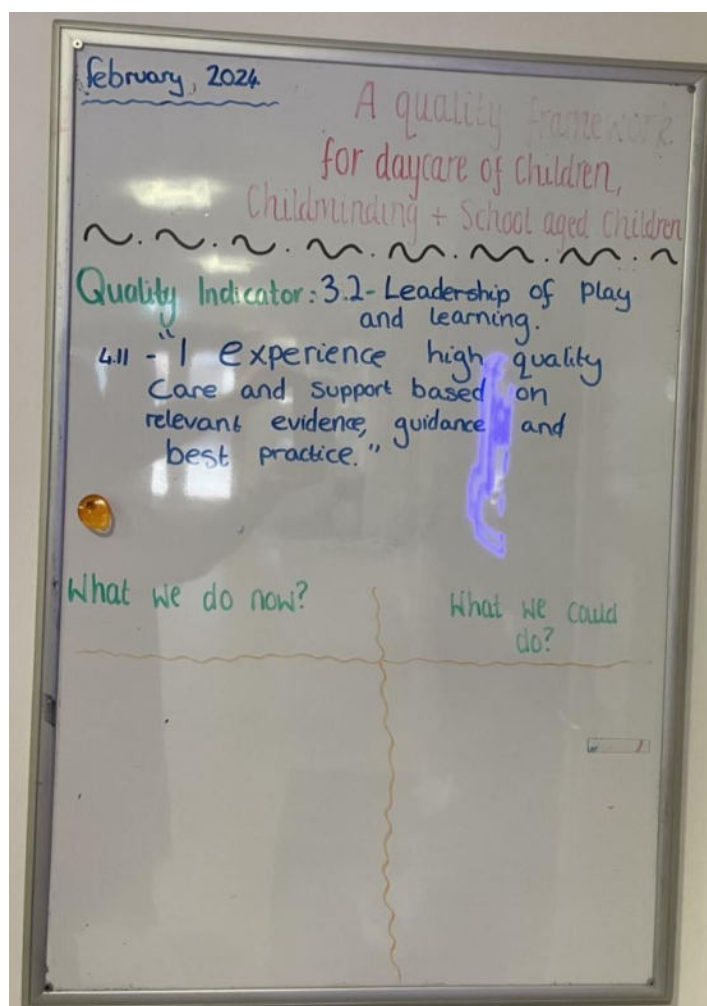 february, 2024
A quality framework
for daycare of Children,
Childminding + School aged Children
Quality Indicator: 3.2 - Leadership of Play
and learning.
4.11 - "I experience high quality
Care and support based on
relevant evidence, guidance and
best practice."
What we do now?
What we could
do?